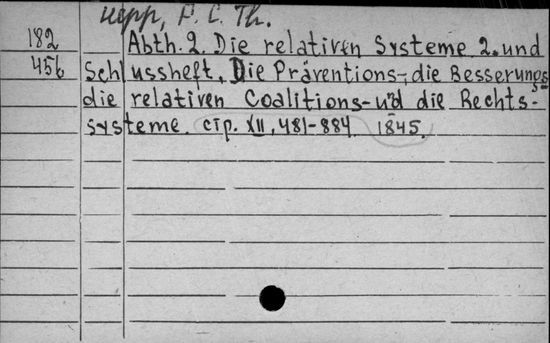 Hepp, F. C. Th.
182 Abth. 2. Die relativen Systeme 2. und
456 Schlussheft. Die Präventions-, die Besserungs
die relativen Coalitions- und die Rechts-
systeme. cip. XII, 481-884 1845.